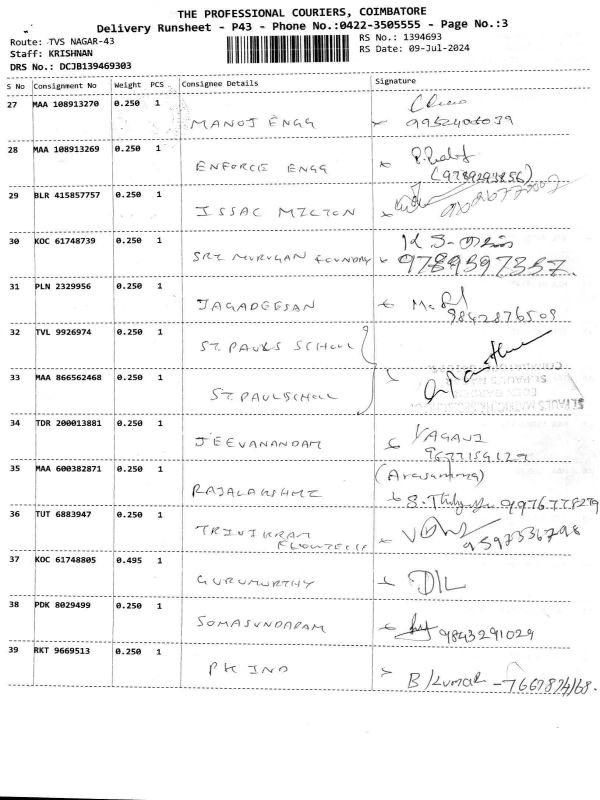 THE PROFESSIONAL COURIERS, COIMBATORE
Delivery Runsheet - P43 - Phone No.:0422-3505555 - Page No.:3
Route: TVS NAGAR-43
RS No.: 1394693
Staff: KRISHNAN
RS Date: 09-Jul-2024
DRS No.: DCJB139469303
S No Consignment No Weight PCS Consignee Details Signature
27 MAA 108913270 0.250 1 MANOJ ENGG
28 MAA 108913269 0.250 1 ENFORCE ENGG
(9789293856)
29 BLR 415857757 0.250 1 ISSAC MILTON
30 KOC 61748739 0.250 1 SRI MURUGAN FOUNDRY
9789397357.
31 PLN 2329956 0.250 1 JAGADEESAN
9842876509
32 TVL 9926974 0.250 1 ST. PAULS SCHOOL
33 MAA 866562468 0.250 1 ST. PAUL SCHOOL
34 TDR 200013881 0.250 1 JEEVANANDAM
35 MAA 600382871 0.250 1 RAJALAKSHMI
9976778279
36 TUT 6883947 0.250 1 TRIVIKRAM
9597336798
37 KOC 61748805 0.495 1 GURUMURTHY DIL
38 PDK 8029499 0.250 1 SOMASUNDARAM
9843291029
39 RKT 9669513 0.250 1 PK IND
B/Kumar